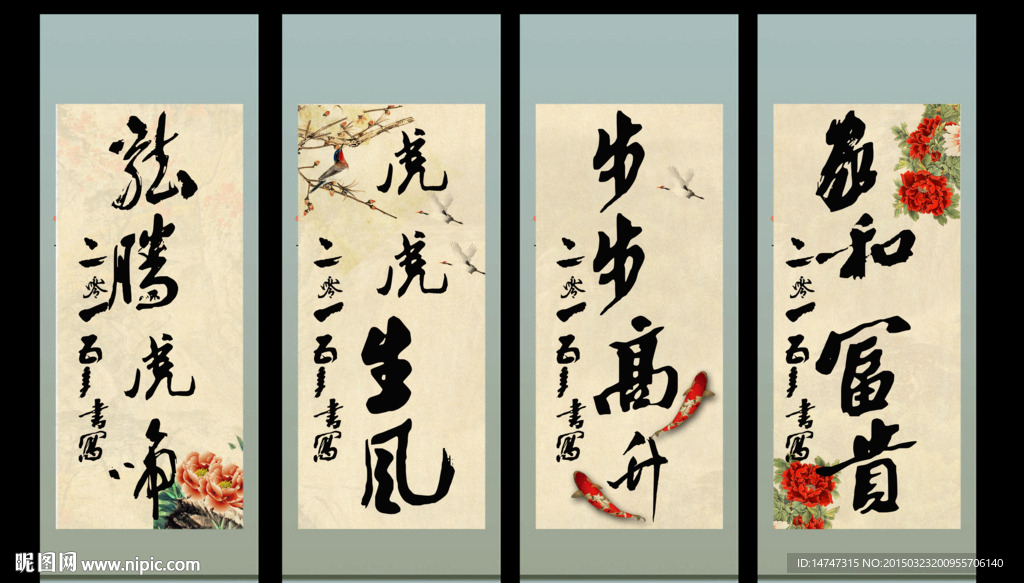 龍騰虎啸
二零一五年書寫
虎虎生風
二零一五年書寫
步步高升
二零一五年書寫
家和富貴
二零一五年書寫
昵图网 www.nipic.com
ID:14747315 NO:20150323200955706140